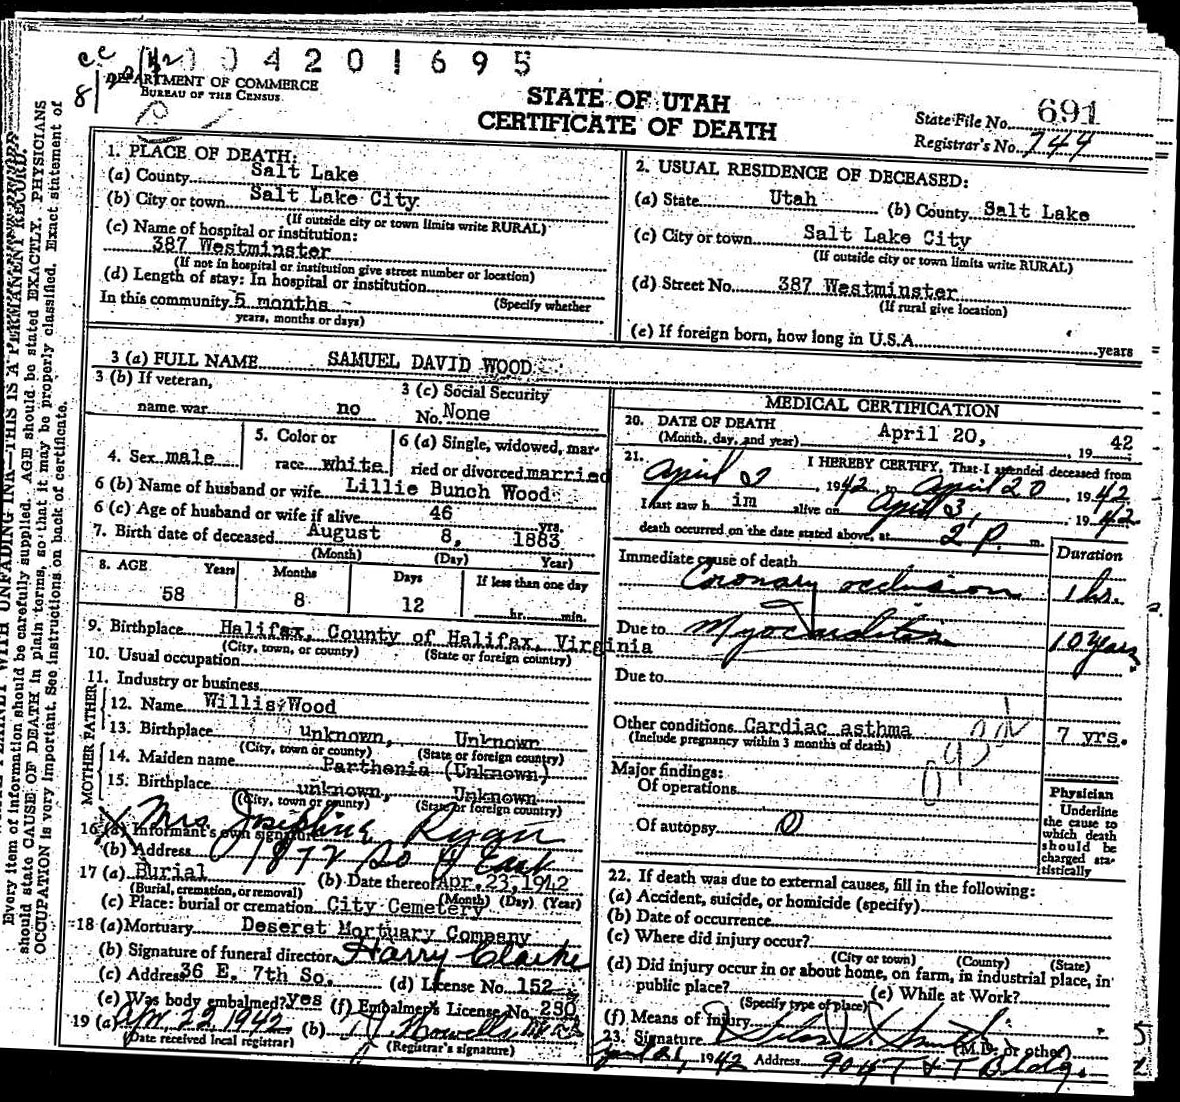 cc
8/
004201695
DEPARTMENT OF COMMERCE
BUREAU OF THE CENSUS
STATE OF UTAH
CERTIFICATE OF DEATH
State File No. 691
Registrar's No. 744
1. PLACE OF DEATH:
(a) County Salt Lake
(b) City or town Salt Lake City
(If outside city or town limits write RURAL)
(c) Name of hospital or institution:
387 Westminster
(If not in hospital or institution give street number or location)
(d) Length of stay: In hospital or institution
(Specify whether
In this community 5 months
years, months or days)
2. USUAL RESIDENCE OF DECEASED:
(a) State Utah (b) County Salt Lake
(c) City or town Salt Lake City
(If outside city or town limits write RURAL)
(d) Street No. 387 Westminster
(If rural give location)
(e) If foreign born, how long in U.S.A. years
3 (a) FULL NAME SAMUEL DAVID WOOD
3 (b) If veteran,
name war no
3 (c) Social Security
No. None
4. Sex male
5. Color or
race white
6 (a) Single, widowed, mar-
ried or divorced married
6 (b) Name of husband or wife Lillie Bunch Wood
6 (c) Age of husband or wife if alive 46 yrs.
7. Birth date of deceased August 8, 1883
(Month) (Day) (Year)
8. AGE Years Months Days If less than one day
58 8 12 hr. min.
9. Birthplace Halifax, County of Halifax, Virginia
(City, town, or county) (State or foreign country)
10. Usual occupation
11. Industry or business
FATHER
12. Name Willis Wood
13. Birthplace unknown, Unknown
(City, town or county) (State or foreign country)
MOTHER
14. Maiden name Parthenia (Unknown)
15. Birthplace unknown, Unknown
(City, town or county) (State or foreign country)
16 (a) Informant's own signature Mrs Josephine Ryan
(b) Address 1872 So 4 East
17 (a) Burial (b) Date thereof Apr. 23, 1942
(Burial, cremation, or removal) (Month) (Day) (Year)
(c) Place: burial or cremation City Cemetery
18 (a) Mortuary Deseret Mortuary Company
(b) Signature of funeral director Harry Clarke
(c) Address 36 E. 7th So. (d) License No. 152
(e) Was body embalmed? yes (f) Embalmer's License No. 290
19 (a) Apr 22, 1942 (b)
(Date received local registrar) (Registrar's signature)
MEDICAL CERTIFICATION
20. DATE OF DEATH
(Month, day, and year) April 20, 19 42
21. I HEREBY CERTIFY, That I attended deceased from
April 3 1942 to April 20, 1942
I last saw h im alive on April 3, 1942
death occurred on the date stated above, at 2 P. m.
Duration
Immediate cause of death
Coronary occlusion 1 hr.
Due to Myocarditis 10 years
Due to
Other conditions Cardiac asthma 7 yrs.
(Include pregnancy within 3 months of death)
Major findings:
Of operations
Of autopsy 0
Physician
Underline
the cause to
which death
should be
charged sta-
tistically
22. If death was due to external causes, fill in the following:
(a) Accident, suicide, or homicide (specify)
(b) Date of occurrence
(c) Where did injury occur?
(City or town) (County) (State)
(d) Did injury occur in or about home, on farm, in industrial place, in
public place? (e) While at Work?
(Specify type of place)
(f) Means of Injury
23. Signature Silas S. Smith (M.D. or other)
21, 1942 Address 904 T & T Bldg.
Every item of information should be carefully supplied. AGE should be stated EXACTLY. PHYSICIANS
should state CAUSE OF DEATH in plain terms, so that it may be properly classified. Exact statement of
OCCUPATION is very important. See instructions on back of certificate.
WITH UNFADING INK—THIS IS A PERMANENT RECORD.